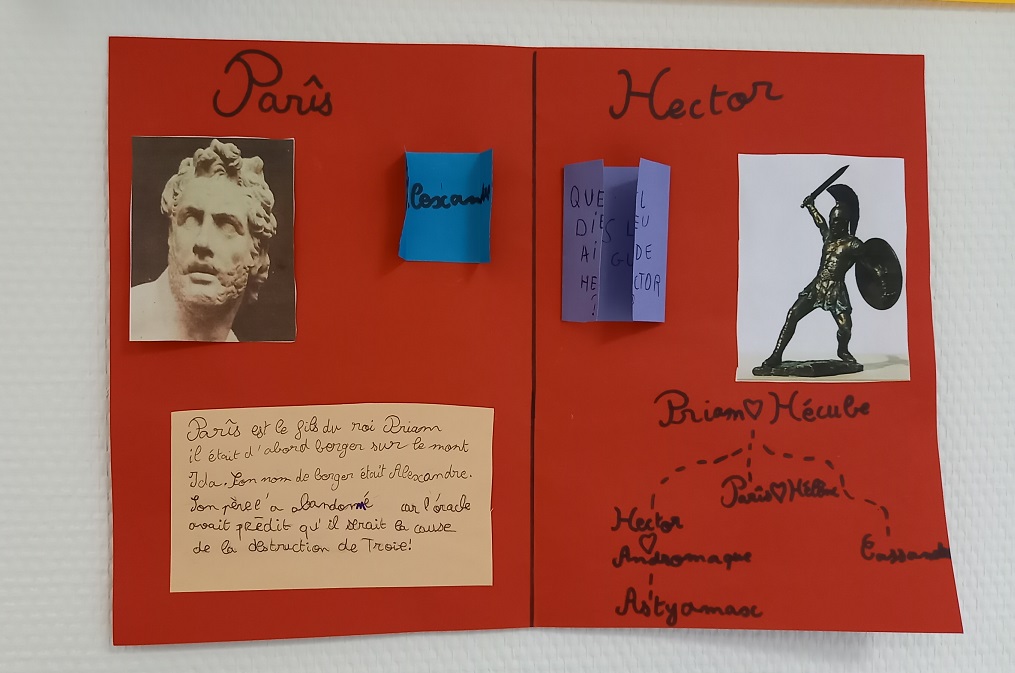 Parîs
Parîs est le fils du roi Priam
il était d'abord berger sur le mont
Ida. Son nom de berger était Alexandre.
Son père l'a abandonné car l'oracle
avait prédit qu'il serait la cause
de la destruction de Troie!
Hector
HECTOR
Priam♡Hécube
Parîs♡Hélène
Hector
♡
Andromaque
Cassandre
Astyamax